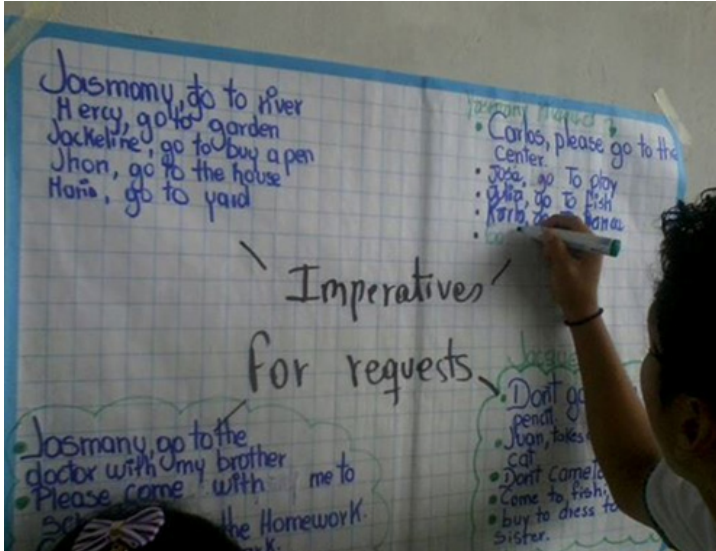 Jasmany, go to river
Mercy, go to garden
Jackeline, go to buy a pen
Jhon, go to the house
go to yard
Carlos, please go to the
center.
José, go To play
go To fish
Karla, go
Imperatives
for requests
Jasmany, go to the
doctor with my brother
Please come with me to
the Homework.
Dont go
pencil.
Juan, takes
cat
Dont came to
Come to fish,
buy to dress to
sister.